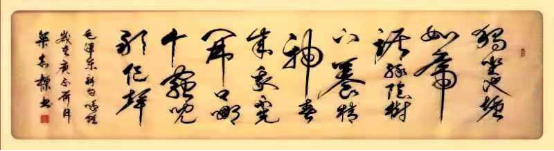 獨坐池塘
如虎
踞綠陰樹
下養精
神春
來我不先
開口哪
个蟲兒
敢作聲
毛澤東詩句咏蛙
歲在庚子荷月
書